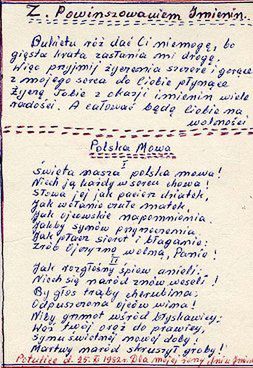 Z. Powinszowaniem Imienin.
Bukietu róż dać Ci niemogę, bo
gięsta krata zasłania mi drogę.
Więc przyjmij życzenia szczere i gorące
z mojego serca do Ciebie płynące
życzę Tobie z okazji imienin wiele
radości. A całować będę Ciebie na
wolności
Polska Mowa
I
święta nasza polska mowa!
Niech ją każdy w sercu chowa!
Słowa jej jak pacierz dziatek,
Jak wołanie czułe matek,
Jak ojcowskie napomnienia
Jakby synów przyrzeczenia,
Jak płacz sierot i błaganie:
Zrób Ojczyznę wolną, Panie!
II
Jak rozgłośny śpiew anieli,
Niech się naród znów weseli!
By głos trąby cherubina,
Odpuszczona ojców wina!
Niby grzmot wśród błyskawicy:
Włóż twój oręż do prawicy,
Synu świetnej nowej doby!
Martwy naród skruszył groby!
Potulice d. 25. 1952 r. Dla mojej żony dniu Imienin